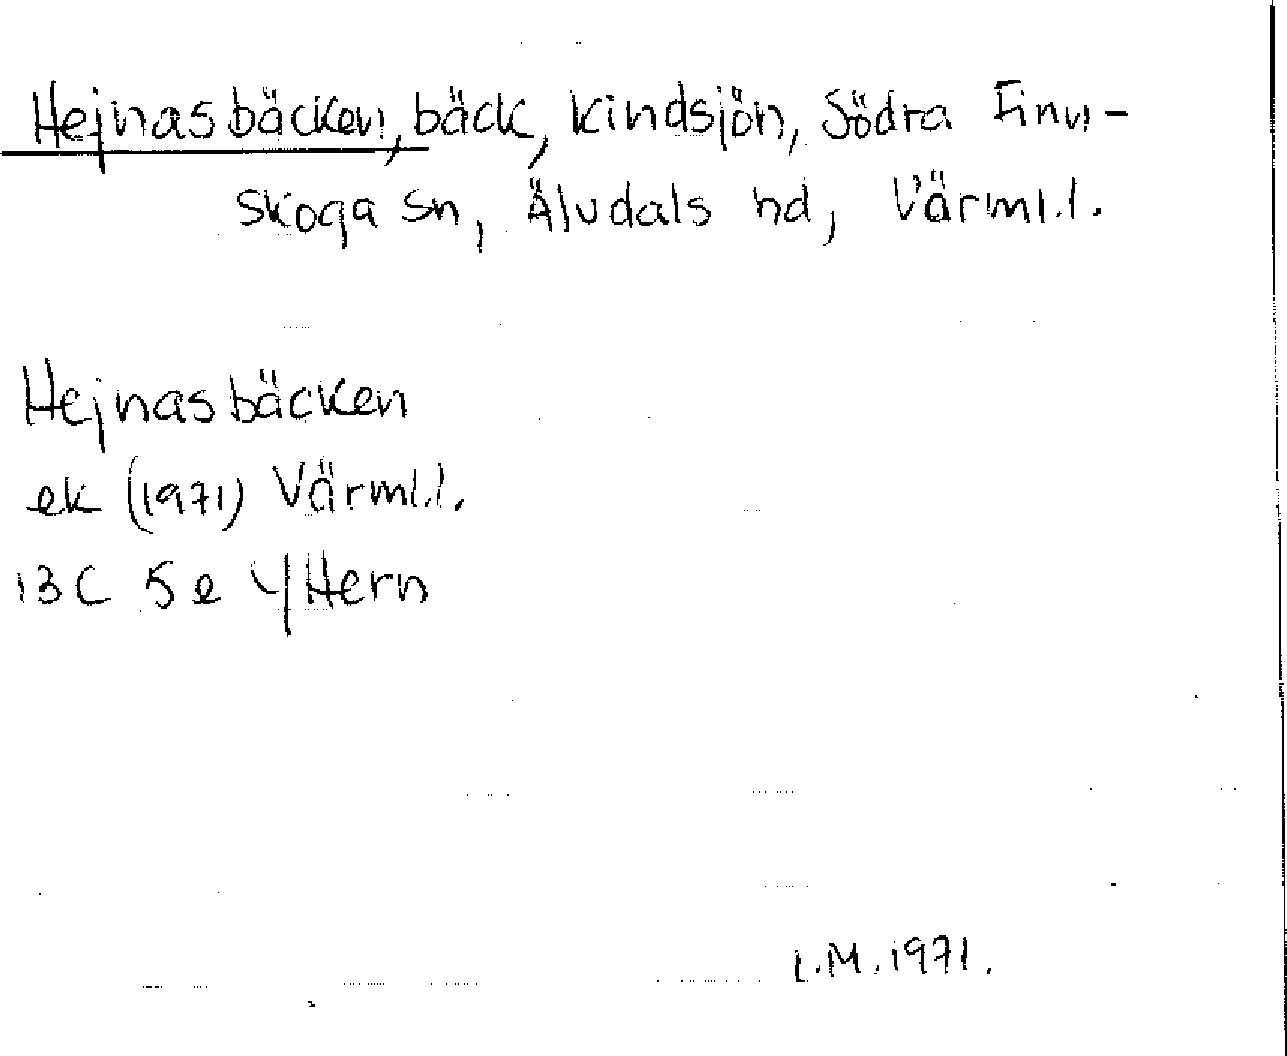 Hejnasbäcken, bäck, Kindsjön, Södra Finn-
skoga sn, Älvdals hd, Värml.l.
Hejnasbäcken
ek (1971) Värml.l.
13C 5e Y/Hern
L.M. 1971.